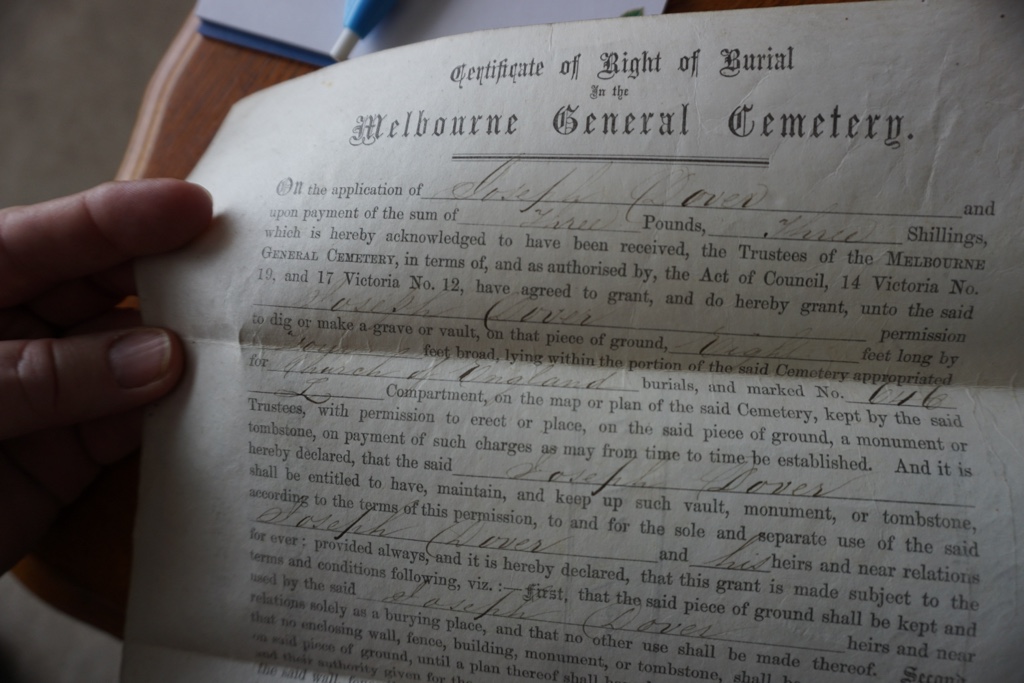 Certificate of Right of Burial
In the
Melbourne General Cemetery.
On the application of Joseph Dover and
upon payment of the sum of Three Pounds, Three Shillings,
which is hereby acknowledged to have been received, the Trustees of the MELBOURNE
GENERAL CEMETERY, in terms of, and as authorised by, the Act of Council, 14 Victoria No.
19, and 17 Victoria No. 12, have agreed to grant, and do hereby grant, unto the said
Joseph Dover permission
to dig or make a grave or vault, on that piece of ground, Eight feet long by
Four feet broad, lying within the portion of the said Cemetery appropriated
for Church of England burials, and marked No. 646
Compartment, on the map or plan of the said Cemetery, kept by the said
Trustees, with permission to erect or place, on the said piece of ground, a monument or
tombstone, on payment of such charges as may from time to time be established. And it is
hereby declared, that the said Joseph Dover
shall be entitled to have, maintain, and keep up such vault, monument, or tombstone,
according to the terms of this permission, to and for the sole and separate use of the said
Joseph Dover and his heirs and near relations
for ever: provided always, and it is hereby declared, that this grant is made subject to the
terms and conditions following, viz.:—First, that the said piece of ground shall be kept and
used by the said Joseph Dover heirs and near
relations solely as a burying place, and that no other use shall be made thereof. Second
that no enclosing wall, fence, building, monument, or tombstone, shall be
on said piece of ground, until a plan thereof shall
and their authority given for the
the said wall,